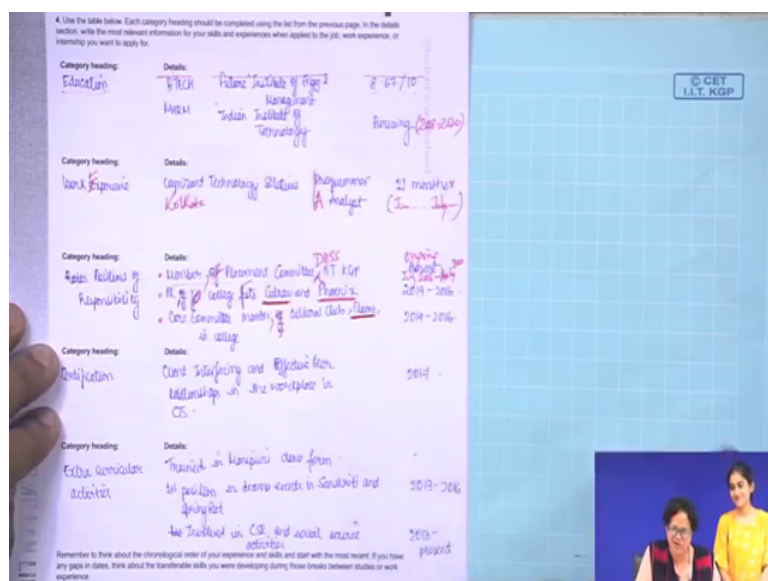 4. Use the table below. Each category heading should be completed using the list from the previous page. In the details
section, write the most relevant information for your skills and experiences when applied to the job, work experience, or
internship you want to apply for.
Category heading: Details:
Education BTECH Future Institute of Engg & Management 8.67/10
MHRM Indian Institute of Technology Pursuing (2018-2020)
© CET
I.I.T. KGP
Category heading: Details:
Work Experience Cognizant Technology Solutions Programmer 21 months
Kolkata Analyst
Category heading: Details:
Positions of Responsibility
• Member of Placement Committee, IIT KGP
ongoing
college fests and Phoenix 2014-2016
• Core Committee member, Cultural Club, in college 2014-2016
Category heading: Details:
Certification Client Interfacing and Effective Peer 2017
Relationships in the workplace in
CTS.
Category heading: Details:
Extra curricular Trained in Manipuri dance form
activities 1st position in drama events in Sanskriti and 2013-2016
Spring Fest
Involved in CSR and social activities 2013-
present
Remember to think about the chronological order of your experience and skills and start with the most recent. If you have
any gaps in dates, think about the transferable skills you were developing during those breaks between studies or work
experience.